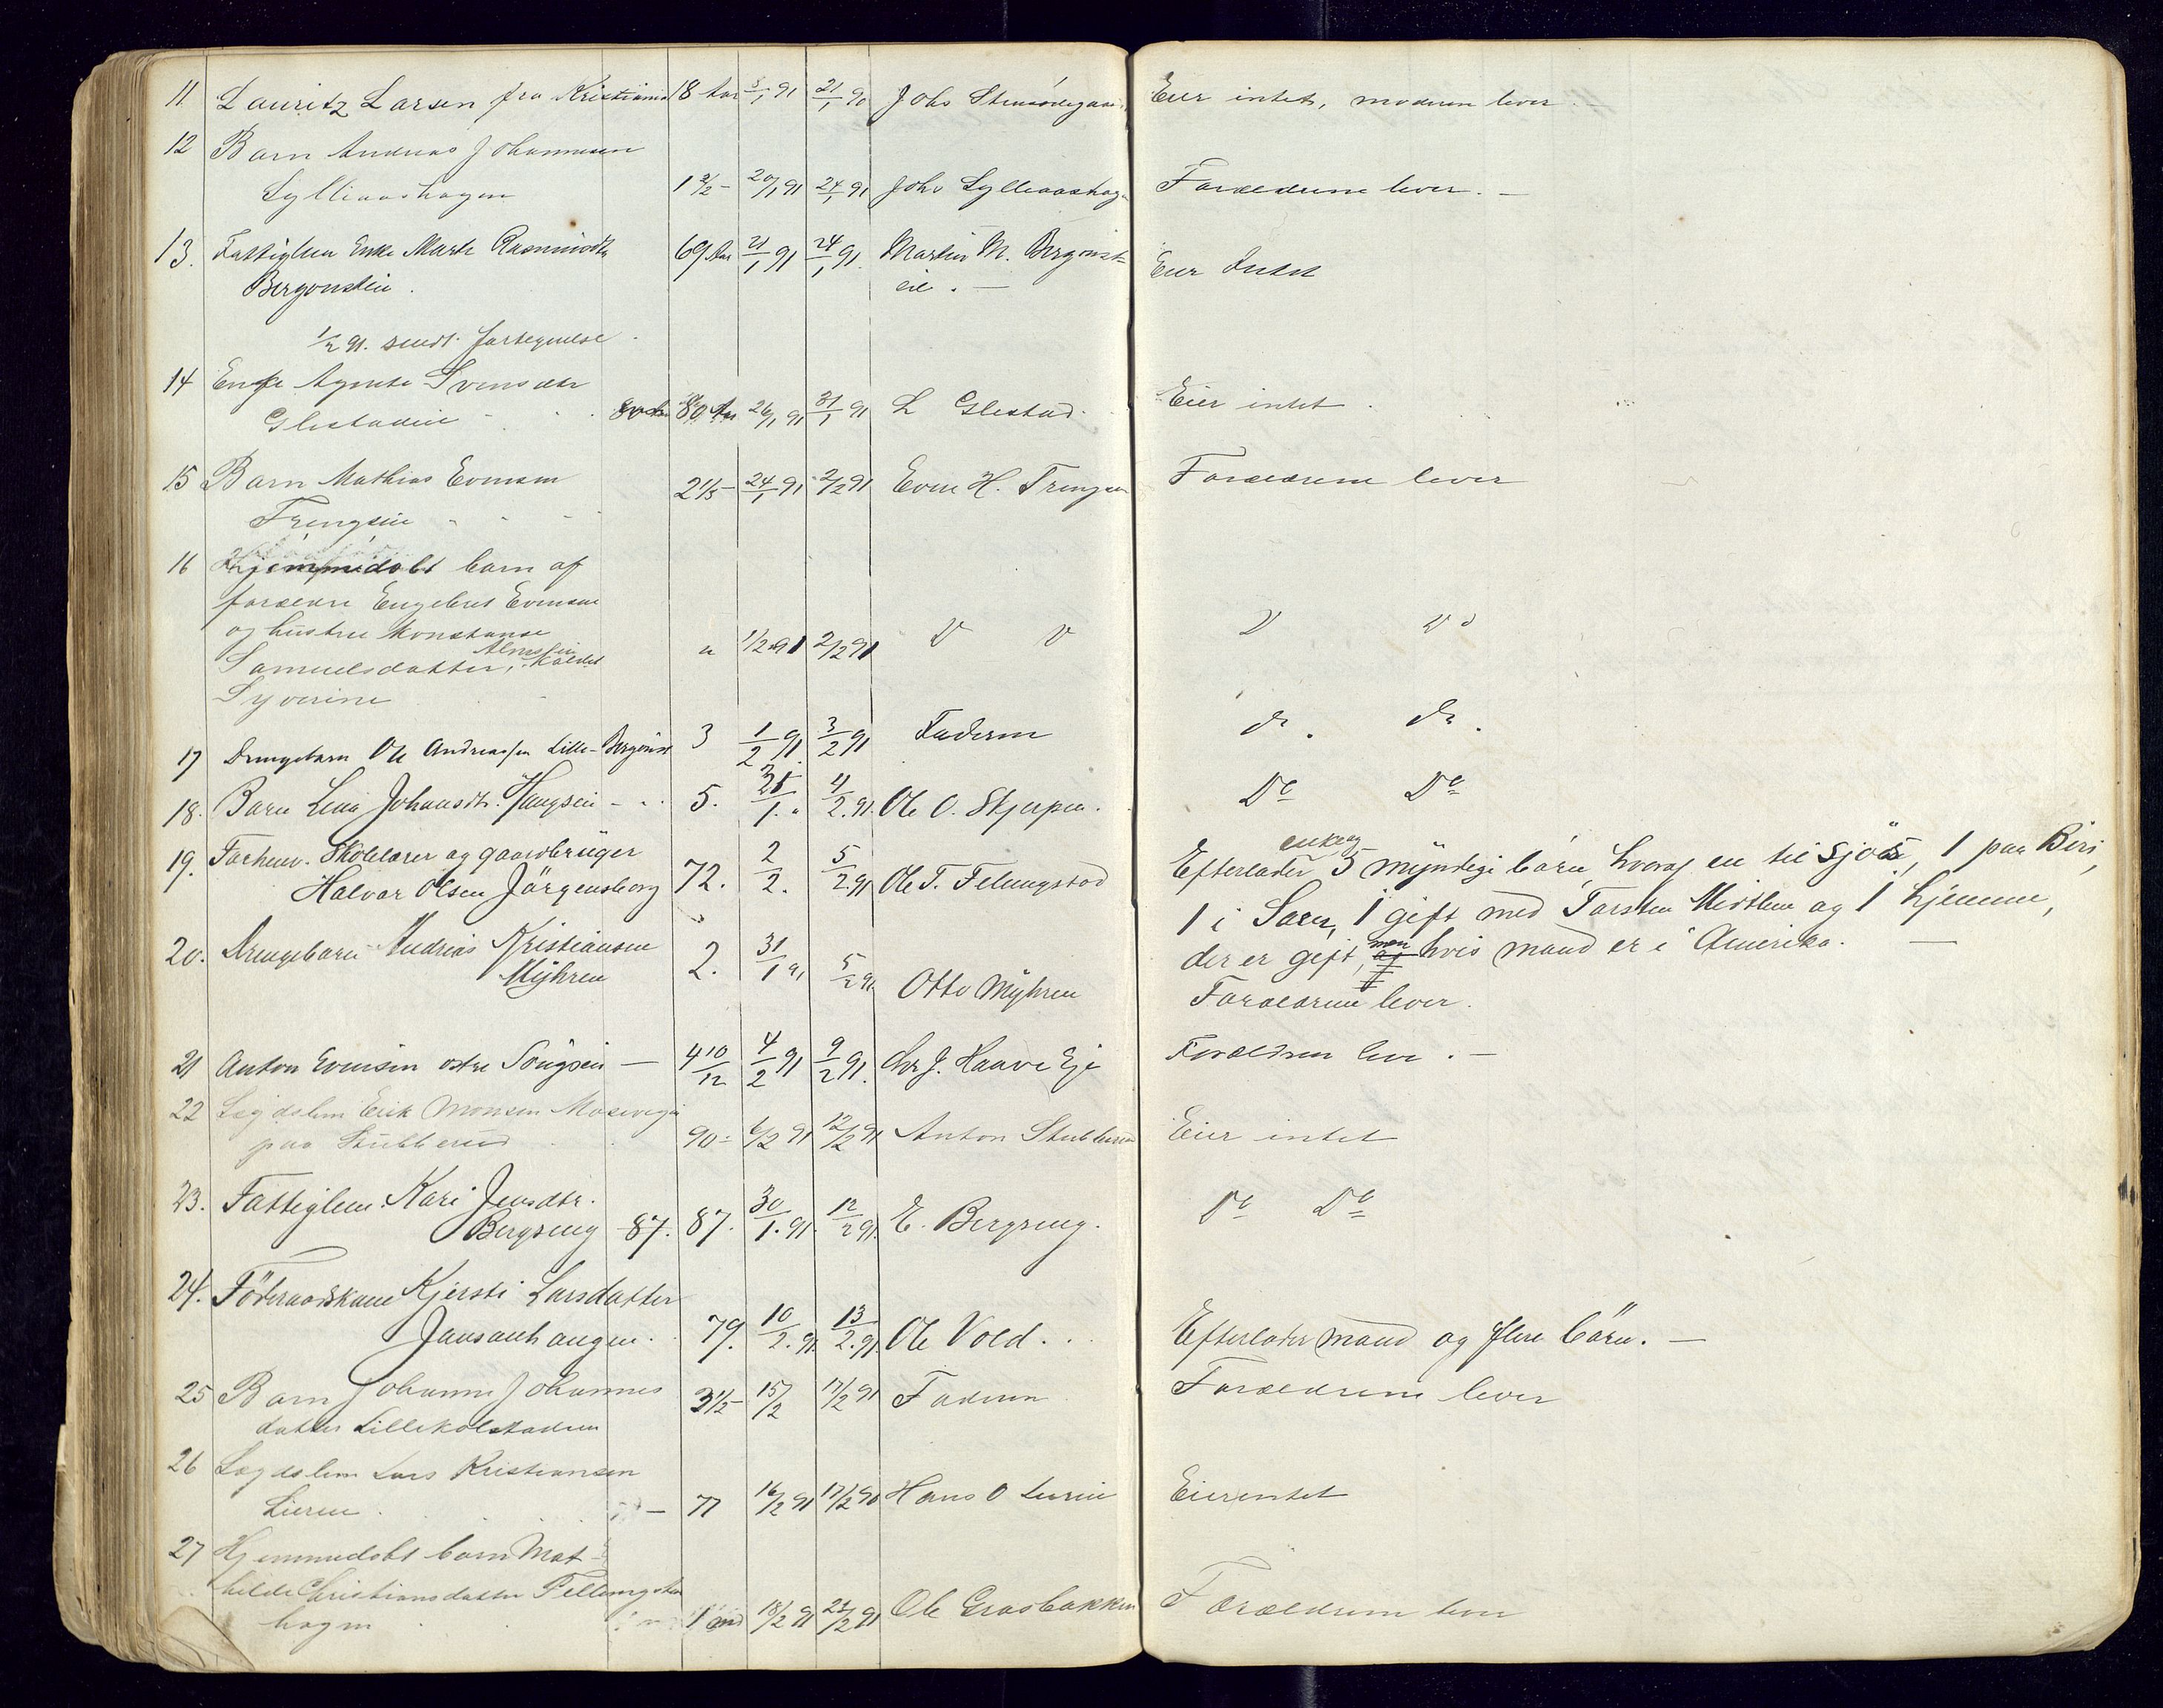 11 Lauritz Larsen fra Kristiania 18 Aar 5/1 91 21/1 90 Johs Eier intet, moderen lever.
12 Barn Andreas Johannesen
Lylliaashagen 1 3/2 - 20/1 91 24/1 91 Johs Lylliaashagen Forældrene lever. -
13. Fattiglem Enke Marte Rasmusdtr 69 Aar 21/1 91 24/1 91. Martin M. Bergonst= Eier Intet
Bergonstei. eie. -
1/2 91. sendt fortegnelse.
14 Enke Agnete Svensdtr
Glestadeie 80 Aar 80 Aar 26/1 91 31/1 91 L Glestad. Eier intet.
15 Barn Mathias Evensen 2 1/3 - 24/1 91 2/2 91 Even H. Forældrene lever
16 Hjemmedøbt barn af
forældre Engebret Evensen
og hustru Konstanse
Samuelsdatter, kaldet " 1/2 91 2/2 91 D D D Do
Syverine
17 Drengebarn Ole Andreassen Lille-Bergonst 3 1/2 91. 3/2 91 Faderen do. do.
18. Barn Lina Johansdtr. 5. 31/1. " 4/2. 91. Ole O. Skjerpen. Do Do
19. Forhenv. Skolelærer og gaardbruger
Halvor Olsen Jörgensborg 72. 2/2. 5/2 91 Ole T. Felungstad
Efterlader enke og 5 myndige börn, hvoraf en til sjös, 1 paa Biri,
1 i Søren, 1 gift med Torsten og 1 hjemme,
der er gift, men hvis mand er i Amerika. -
20. Drengebarn Andreas Kristiansen
Myhren 2. 31/1 91 5/2 91. Otto Myhren Forældrene lever.
21 Anton Evensen østre - 4 10/12 4/2 91 9/2 91. Chr J. Haave Eje Forældren leve. -
22 Lægdslem Erik Monsen
paa Stubberud 90 - 6/2 91 12/2 91 Anton Stubberud Eier intet
23. Fattiglem Kari Jensdtr.
Bergseng 87. 87. 30/1. 91. 12/2 91. E. Bergseng. Do Do
24. Föderaadskone Kjersti Larsdatter
Jansenhaugen. 79. 10/2. 91. 13/2. 91. Ole Vold. Efterlader mand og flere börn. -
25 Barn Johanne Johannes 3 1/2 - 15/2 17/2 91 Faderen Forældrene lever
datter Lillekolstadeen
26 Lægdslem Lars Kristiansen
Lieren. - 77 16/2 91 17/2 90 Hans O Eier intet
27 Hjemmedøbt barn Mat-
hilde Christiansdatter Fellungsta
hagen 1 md 18/2 91 21/2 91 Ole Grasbakken Forældrene lever